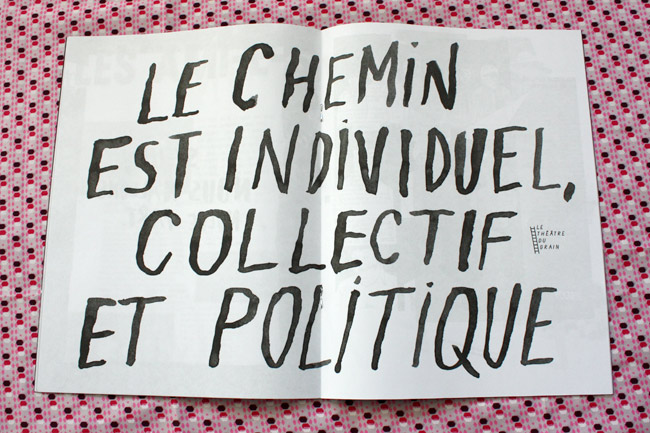 LE CHEMIN
EST INDIVIDUEL,
COLLECTIF
ET POLITIQUE
LE
THÉÂTRE
DU
GRAIN